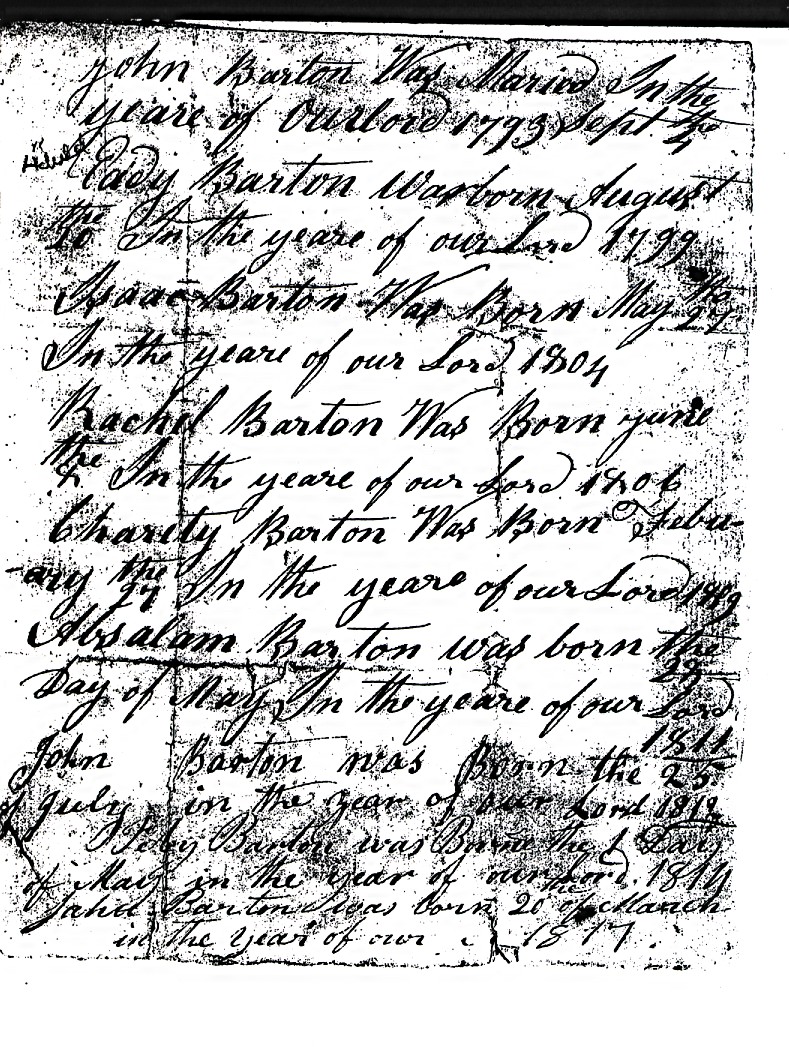 John Barton Was Maried In the
yeare of Our Lord 1793 Sept the 4
Eady Barton was born August
the 20 In the yeare of our Lord 1799
Isaac Barton Was Born May the 27
In the yeare of our Lord 1804
Rachel Barton Was Born june
the 2 In the yeare of our Lord 1806
Charity Barton Was Born Febu-
-ary the 27 In the yeare of our Lord 1809
Absalam Barton was born the 22
Day of May In the yeare of our Lord
1811
John Barton was Born the 25
of July in the year of our Lord 1812
Barton was Borne the 1 Day
of May in the year of our Lord 1814
Barton was born 20 the of March
in the year of our 1817